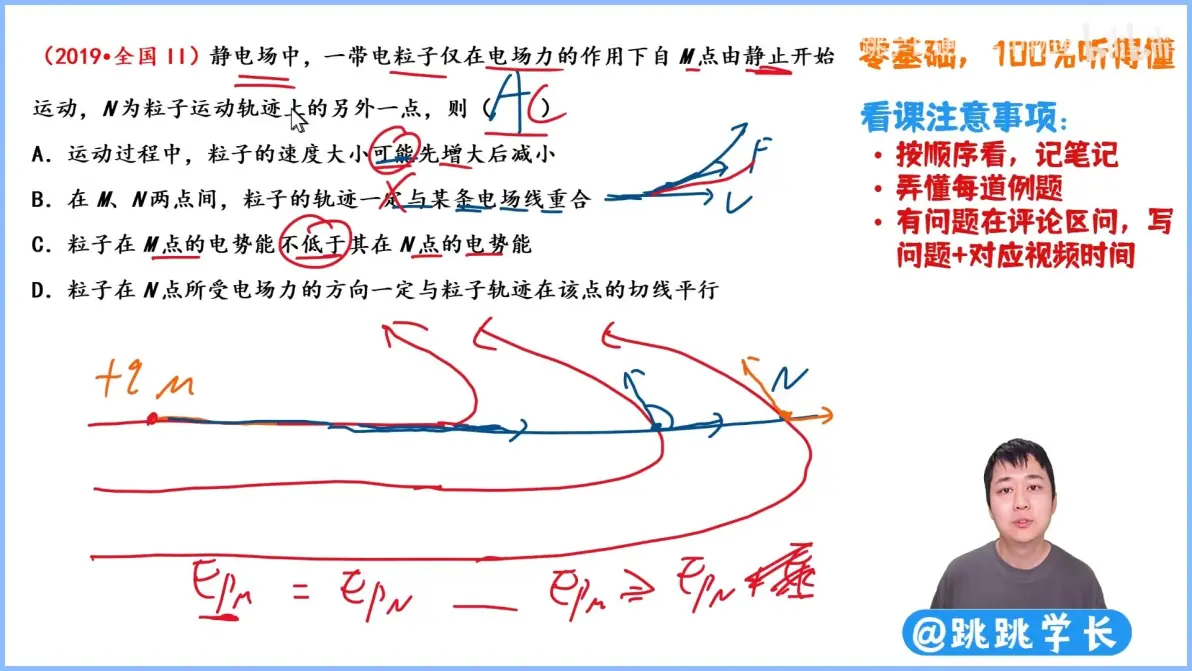 (2019•全国 II) 静电场中，一带电粒子仅在电场力的作用下自 M 点由静止开始
运动，N 为粒子运动轨迹上的另外一点，则（ AC ）
A．运动过程中，粒子的速度大小可能先增大后减小
B．在 M、N 两点间，粒子的轨迹一定与某条电场线重合
C．粒子在 M 点的电势能不低于其在 N 点的电势能
D．粒子在 N 点所受电场力的方向一定与粒子轨迹在该点的切线平行
F
V
+q M
N
EPM = EPN EPM ≥ EPN
零基础，100%听得懂
看课注意事项：
• 按顺序看，记笔记
• 弄懂每道例题
• 有问题在评论区问，写
问题+对应视频时间
@跳跳学长